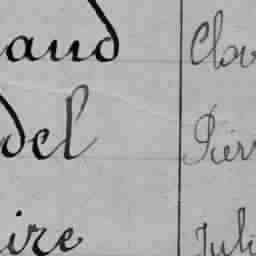 aud Clov
del Pierr
ire Juli